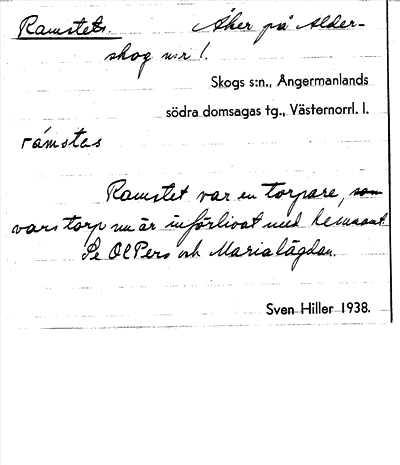 Ramstets. Åker på Alder-
skog n:r 1.
Skogs s:n., Ångermanlands
södra domsagas tg., Västernorrl. l.
rámstas
Ramstet var en torpare, som
vars torp nu är införlivat med hemmant.
Se OlPers och Marialägdan.
Sven Hiller 1938.